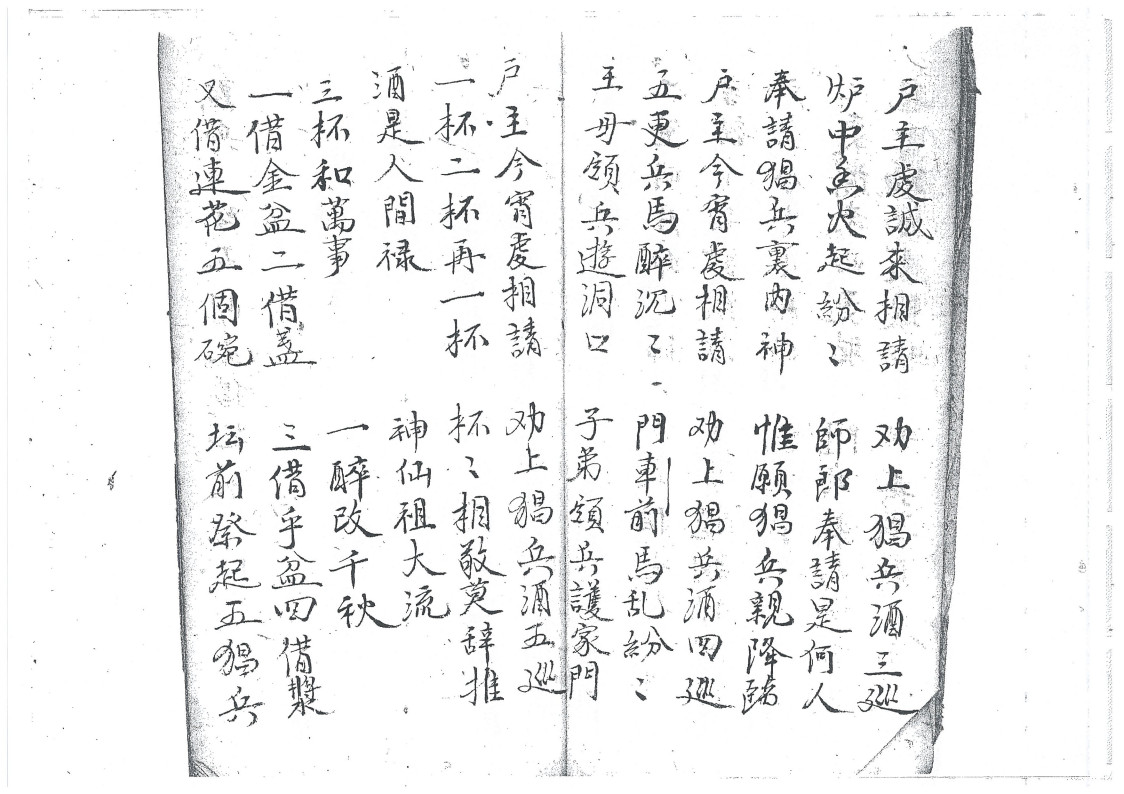 戶主虔誠來相請　劝上猖兵酒三巡
炉中香火起紛〻　師郎奉請是何人
奉請猖兵裏內神　惟願猖兵親降臨
戶主今宵虔相請　劝上猖兵酒四巡
五更兵馬醉沉〻　門車前馬乱紛〻
主母領兵遊洞口　子弟領兵護家門
戶主今宵虔相請　劝上猖兵酒五巡
一杯二杯再一杯　杯〻相敬莫辞推
酒是人間禄　神仙祖大流
三杯和萬事　一醉改千秋
一借金盆二借盖　三借乎盆四借漿
又借連花五個碗　坛前祭起五猖兵